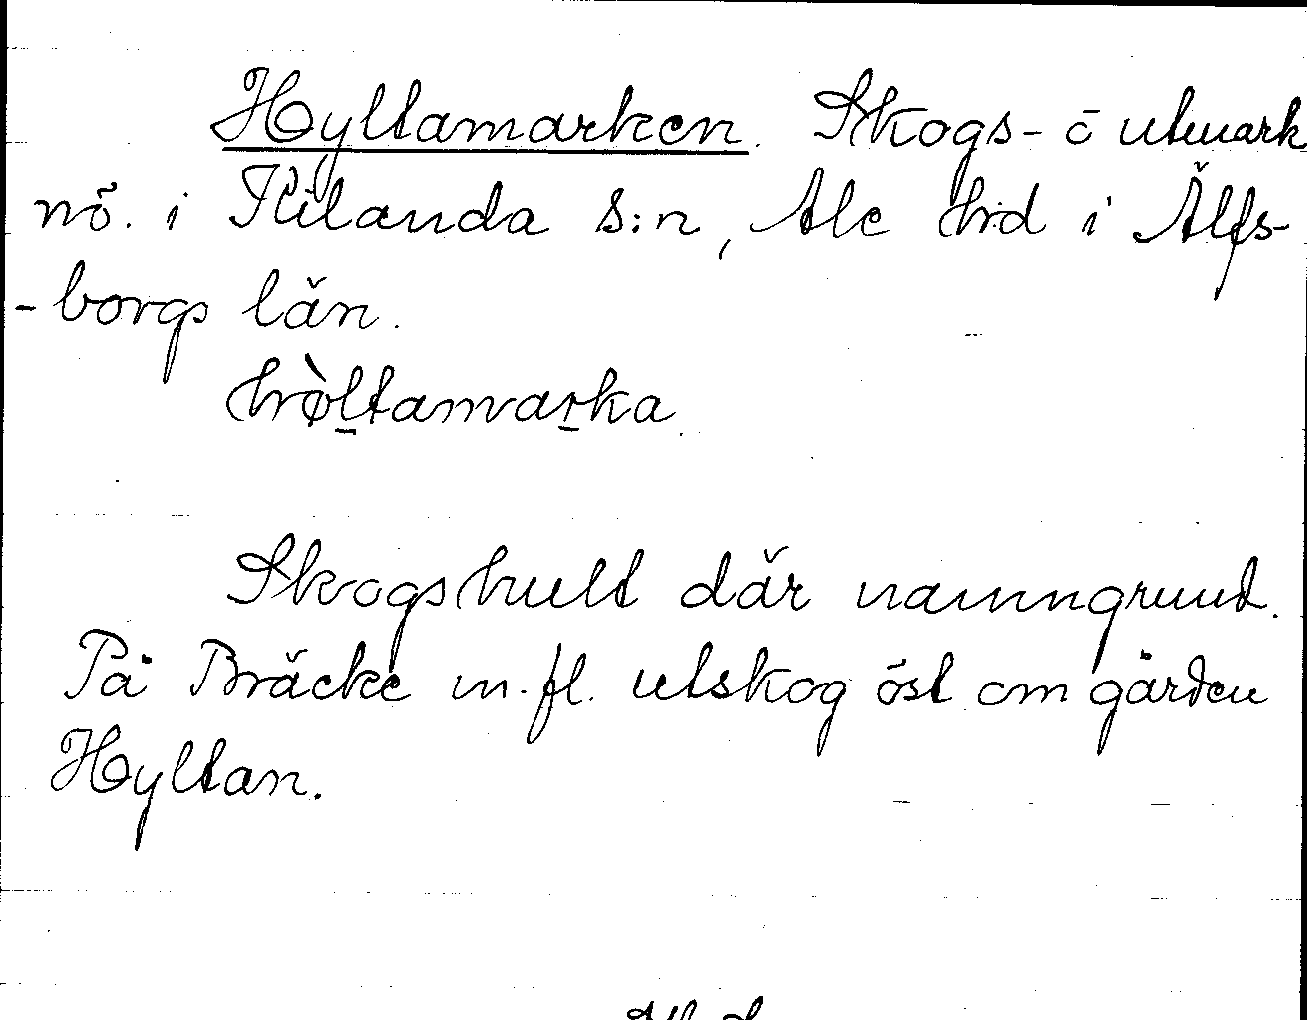 Hyltamarken. Skogs- o utmark
nö. i Kilanda s:n, Ale hrd i Älfs-
-borgs län.
hø̀ltamarka.
Skogshult där namngrund.
På Bräcke m.fl. utskog öst om gården
Hyltan.